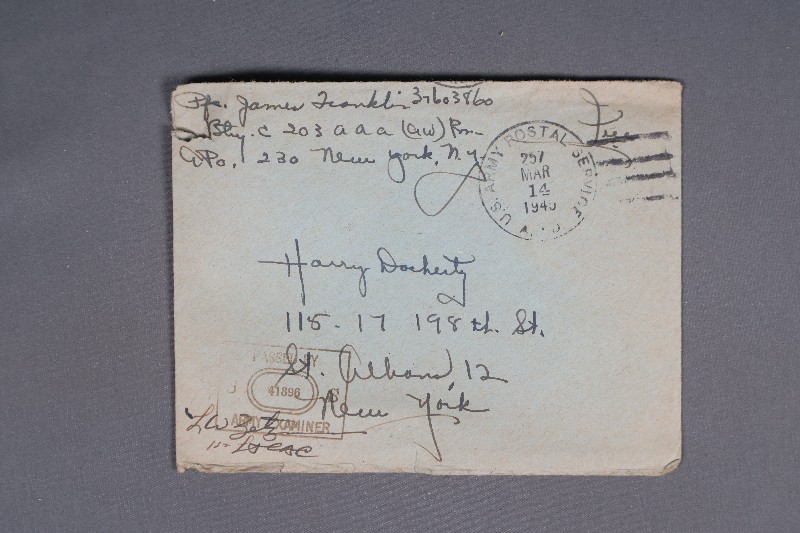 Pfc. James Franklin 37603860
Btry. C 203 a a a (aw) Bn.
APO. 230 New York, N.Y.
Free
U.S. ARMY POSTAL SERVICE
957
MAR
14
1945
Harry Docherty
115-17 198th. St.
St. Albans, 12
New York
PASSED BY
U 41896 S
ARMY EXAMINER
1st Lt CAC